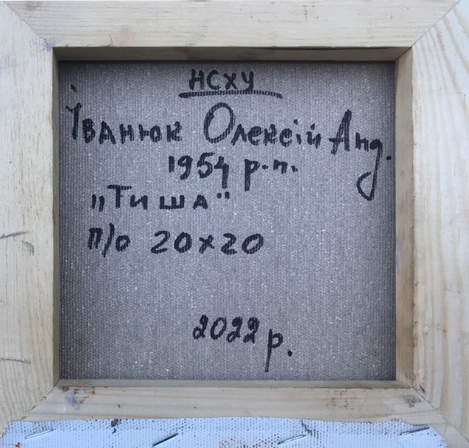 НСХУ
Іванюк Олексій Анд.
1954 р.н.
„Тиша"
п/о 20х20
2022 р.